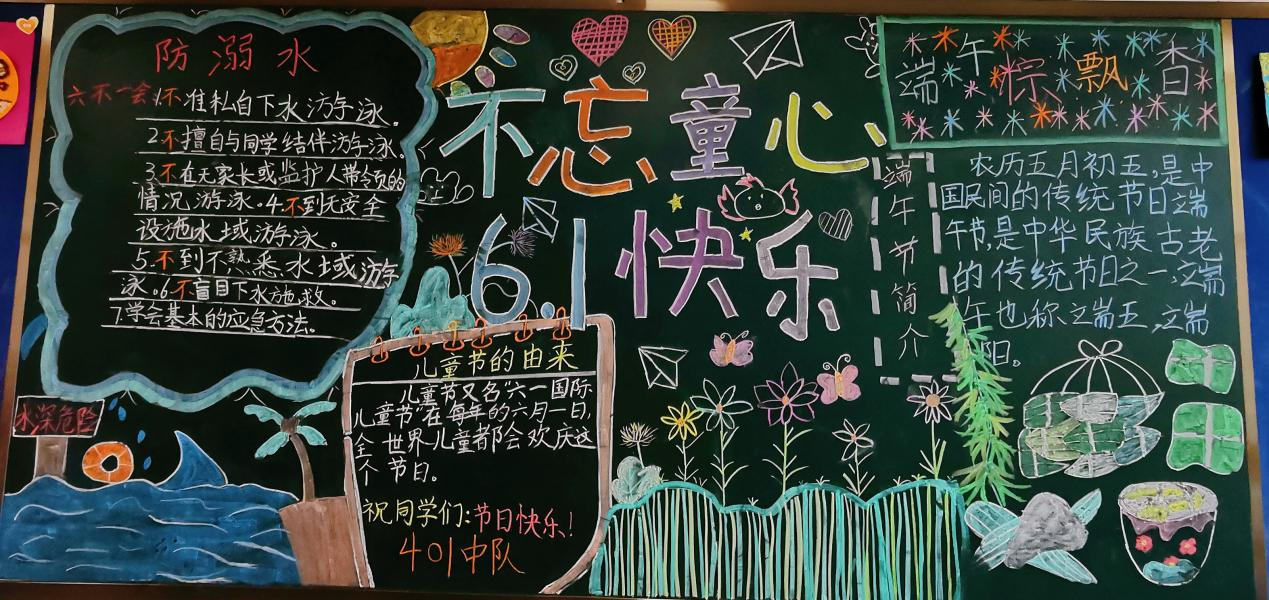 防溺水
六不一会:1.不准私自下水游泳。
2.不擅自与同学结伴游泳。
3.不在无家长或监护人带领的
情况游泳。4.不到无安全
设施水域游泳。
5.不到不熟悉水域游
泳。6.不盲目下水施救。
7.学会基本的应急方法。
水深危险
不忘童心
6.1快乐
儿童节的由来
儿童节又名"六一国际
儿童节"在每年的六月一日,
全世界儿童都会欢庆这
个节日。
祝同学们:节日快乐!
401中队
端午粽飘香
端午节简介
农历五月初五,是中
国民间的传统节日端
午节,是中华民族古老
的传统节日之一,端
午也称端五,端
阳。